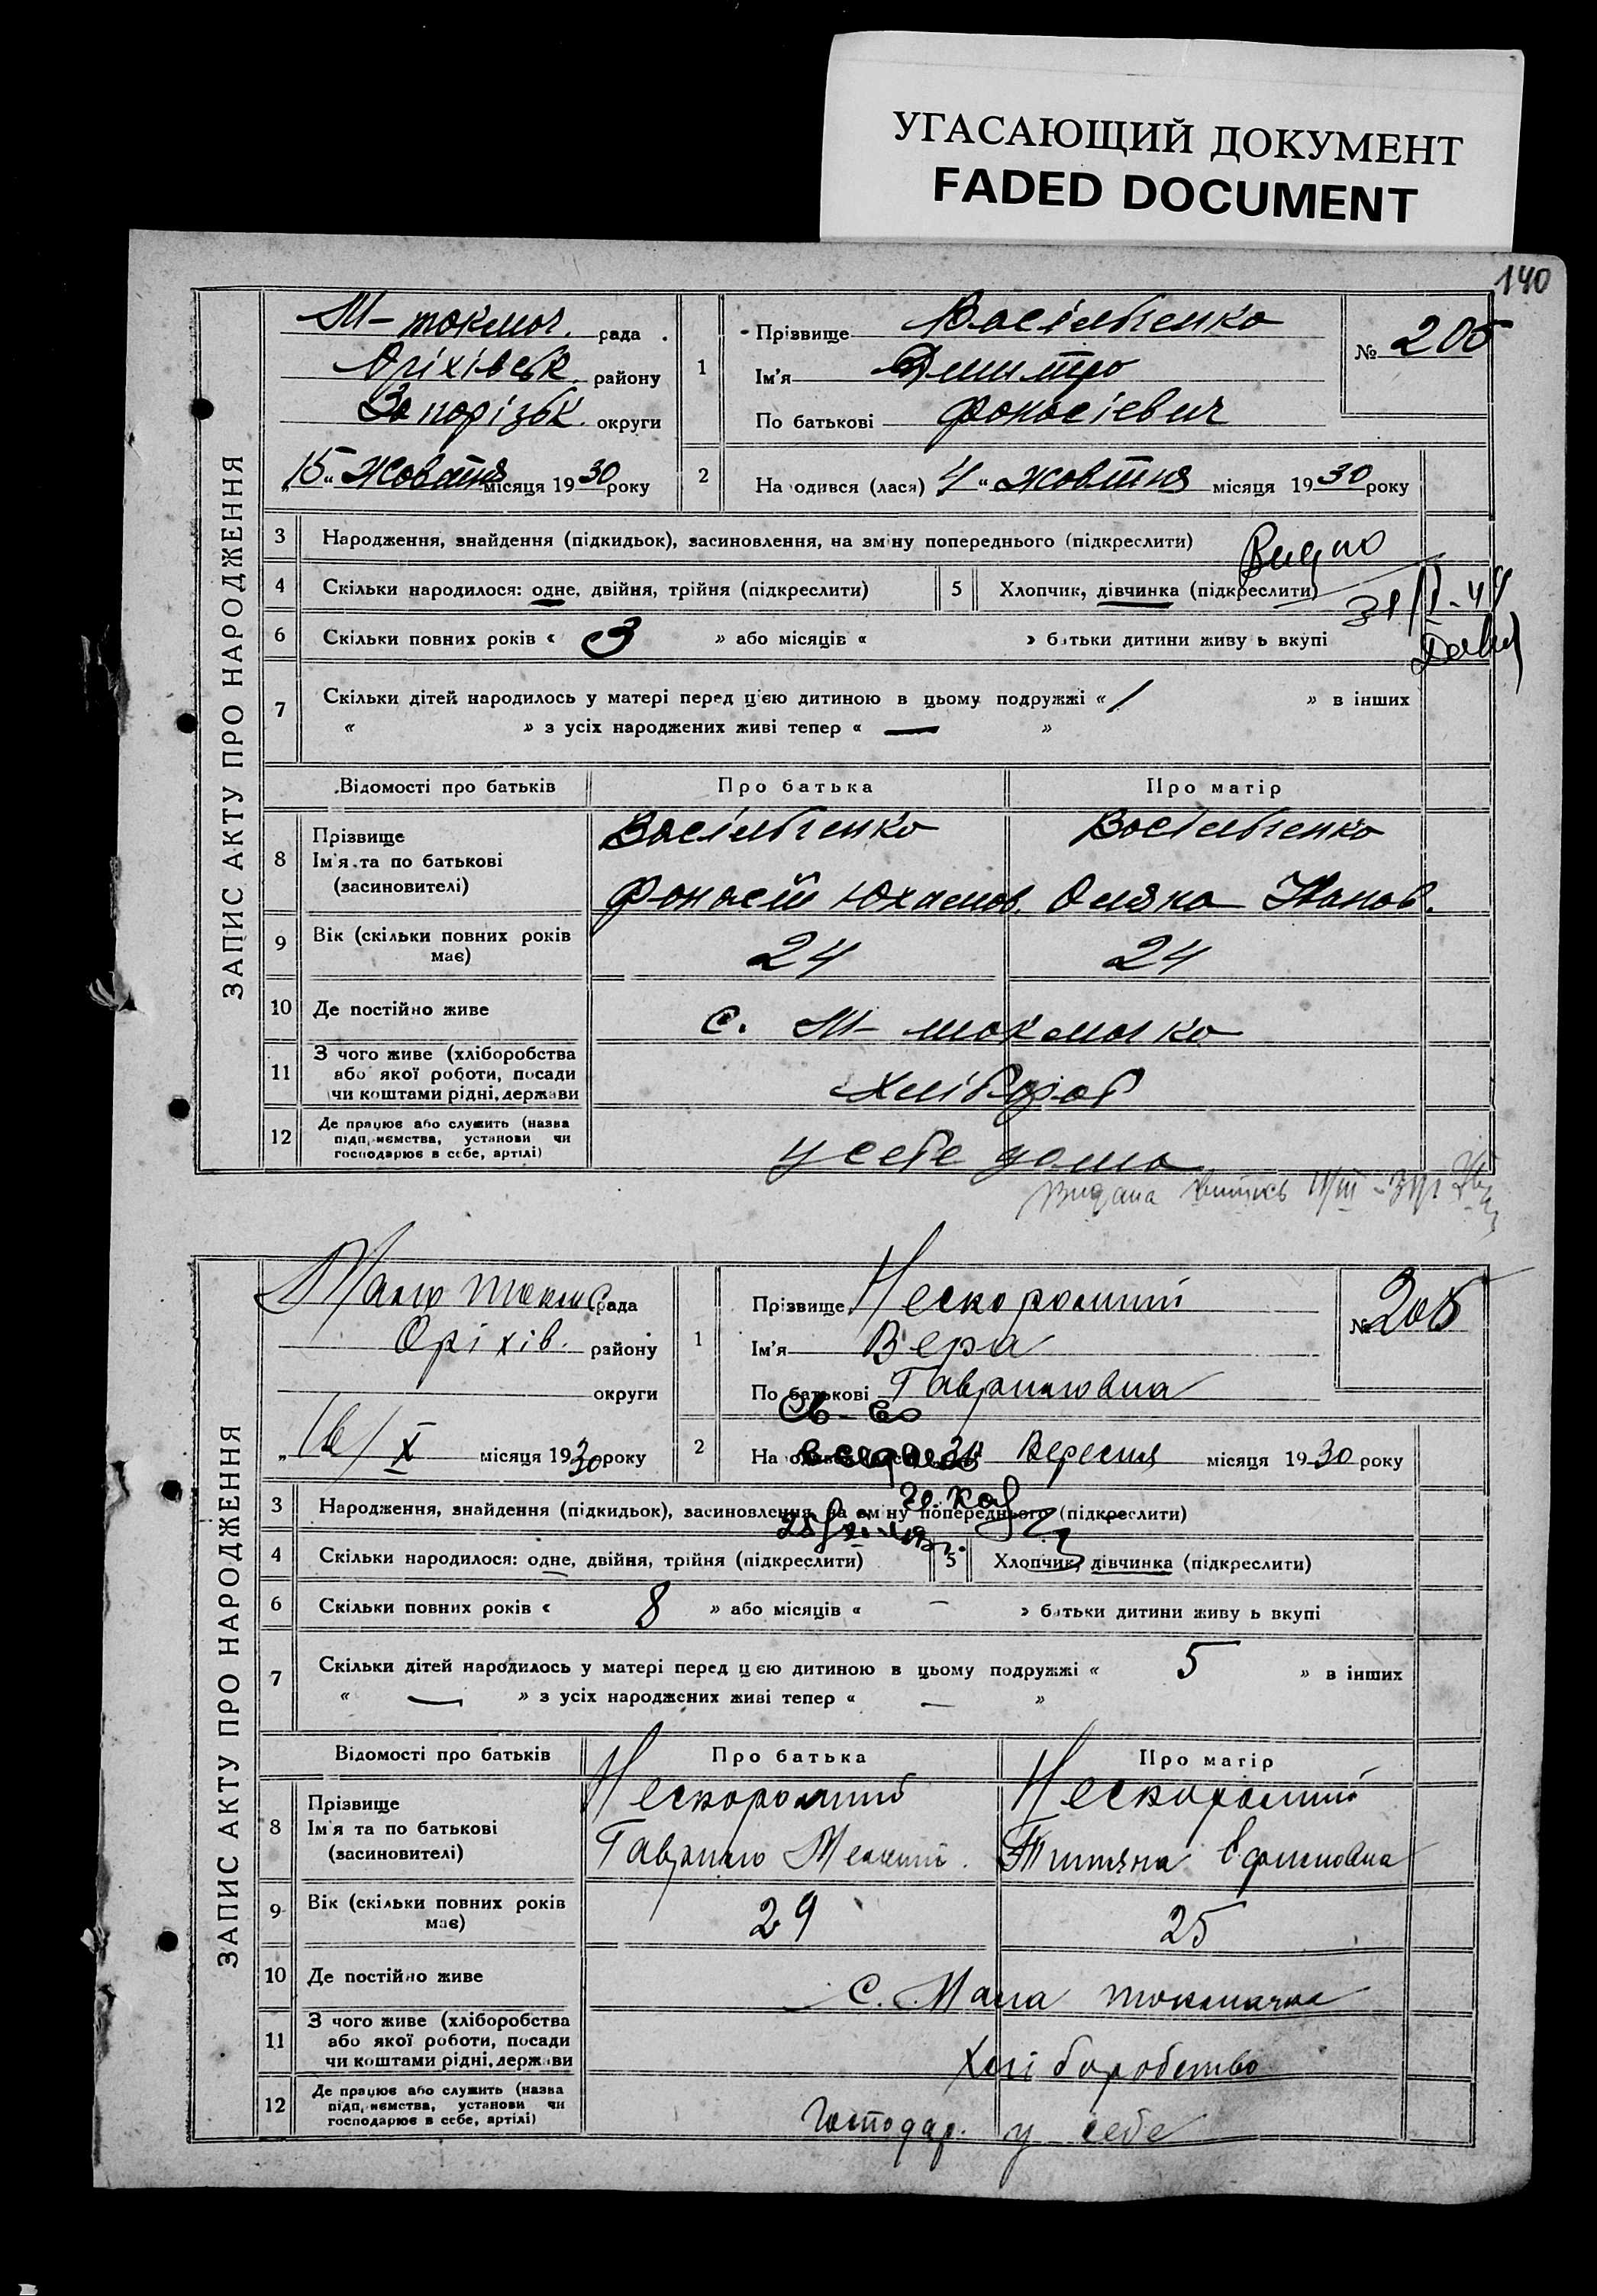 УГАСАЮЩИЙ ДОКУМЕНТ
FADED DOCUMENT
140
ЗАПИС АКТУ ПРО НАРОДЖЕННЯ
М-токмач. рада
Оріхівськ. району
Запорізьк. округи
„15" Жовтня місяця 1930 року
1
Прізвище Васільченко
Ім'я Дмитро
По батькові Фонасіевич
№ 205
2
На одився (лася) 4 " жовтня місяця 1930 року
3 Народження, знайдення (підкидьок), засиновлення, на зміну попереднього (підкреслити)
4 Скільки народилося: одне, двійня, трійня (підкреслити)
5 Хлопчик, дівчинка (підкреслити)
6 Скільки повних років « 3 » або місяців « » батьки дитини живу ь вкупі
7 Скільки дітей народилось у матері перед цією дитиною в цьому подружжі « 1 » в інших
« » з усіх народжених живі тепер « — »
Відомості про батьків Про батька Про матір
8 Прізвище
Ім'я та по батькові
(засиновителі)
Васільченко Васільченко
Фонасій Юхимов. Оляна Іванов.
9 Вік (скільки повних років має) 24 24
10 Де постійно живе с. М-токмачка
11 З чого живе (хліборобства
або якої роботи, посади
чи коштами рідні, держави
Хлібороб
12 Де працює або служить (назва
підп, иємства, установи чи
господарює в себе, артілі)
у себе дома
Видана
ЗАПИС АКТУ ПРО НАРОДЖЕННЯ
Мало рада
Оріхів. району
округи
X місяця 1930 року
1
Прізвище Нескоромний
Ім'я Вера
По батькові Гавриловна
№ 205
2
На Вересня місяця 1930 року
3 Народження, знайдення (підкидьок), засиновлення, на зміну попереднього (підкреслити)
4 Скільки народилося: одне, двійня, трійня (підкреслити)
5 Хлопчик, дівчинка (підкреслити)
6 Скільки повних років « 8 » або місяців « — » батьки дитини живу ь вкупі
7 Скільки дітей народилось у матері перед цією дитиною в цьому подружжі « 5 » в інших
« — » з усіх народжених живі тепер « — »
Відомості про батьків Про батька Про матір
8 Прізвище
Ім'я та по батькові
(засиновителі)
Нескоромний Нескоромний
Гаврило Титяна Ефимовна
9 Вік (скільки повних років має) 29 25
10 Де постійно живе С. Мала токмачка
11 З чого живе (хліборобства
або якої роботи, посади
чи коштами рідні, держави
Хліборобство
12 Де працює або служить (назва
підп, иємства, установи чи
господарює в себе, артілі)
Господар. у себе